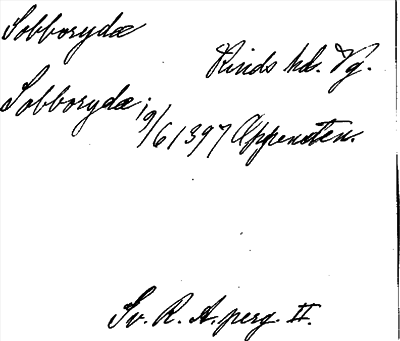 Sobborydæ
Kinds hd. Vg.
Sobborydæ i
19/6 1397 Oppensten.
Sv. R. A. perg. II.